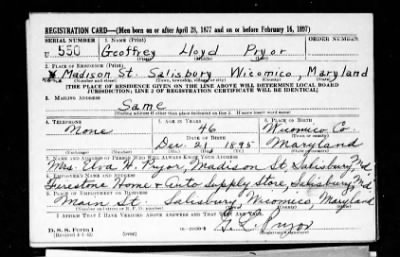 REGISTRATION CARD—(Men born on or after April 28, 1877 and on or before February 16, 1897)
SERIAL NUMBER 1. NAME (Print)
U 550 Geoffrey Lloyd Pryor
2. PLACE OF RESIDENCE (Print)
Madison St. Salisbury Wicomico, Maryland
[THE PLACE OF RESIDENCE GIVEN ON THE LINE ABOVE WILL DETERMINE LOCAL BOARD
JURISDICTION; LINE 2 OF REGISTRATION CERTIFICATE WILL BE IDENTICAL]
3. MAILING ADDRESS
Same
4. TELEPHONE 5. AGE IN YEARS 6. PLACE OF BIRTH
None 46 Wicomico Co.
DATE OF BIRTH
Dec. 21 1895 Maryland
7. NAME AND ADDRESS OF PERSON WHO WILL ALWAYS KNOW YOUR ADDRESS
Mrs. Elva W. Pryor, Madison St. Salisbury, Md.
8. EMPLOYER'S NAME AND ADDRESS
Firestone Home & Auto Supply Store, Salisbury, Md.
9. PLACE OF EMPLOYMENT OR BUSINESS
Main St. Salisbury, Wicomico Maryland
I AFFIRM THAT I HAVE VERIFIED ABOVE ANSWERS AND THAT THEY ARE TRUE.
D. S. S. Form 1
G. L. Pryor